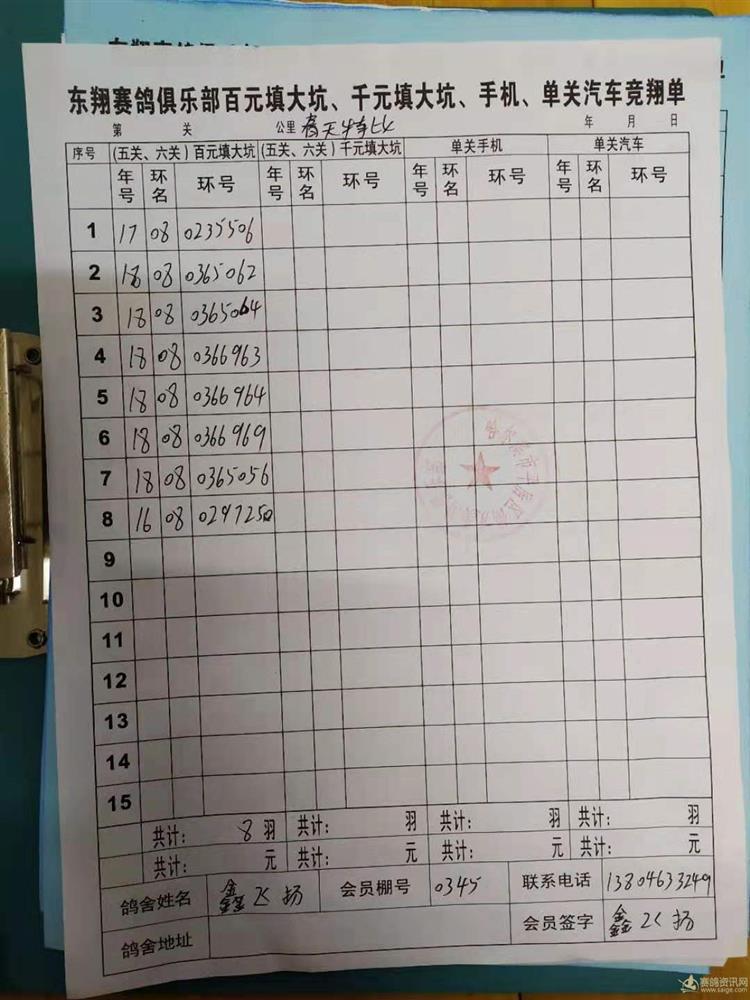 东翔赛鸽俱乐部百元填大坑、千元填大坑、手机、单关汽车竞翔单
第 关 公里 春天特比 年 月 日
序号 (五关、六关)百元填大坑 (五关、六关)千元填大坑 单关手机 单关汽车
年号 环名 环号 年号 环名 环号 年号 环名 环号 年号 环名 环号
1 17 08 0235506
2 18 08 0365062
3 18 08 0365064
4 18 08 0366963
5 18 08 0366964
6 18 08 0366969
7 18 08 0365056
8 16 08 0297250
9
10
11
12
13
14
15
共计: 8 羽 共计: 羽 共计: 羽 共计: 羽
共计: 元 共计: 元 共计: 元 共计: 元
鸽舍姓名 鑫飞扬 会员棚号 0345 联系电话 13804633249
鸽舍地址 会员签字 鑫飞扬
赛鸽资讯网
www.saige.com